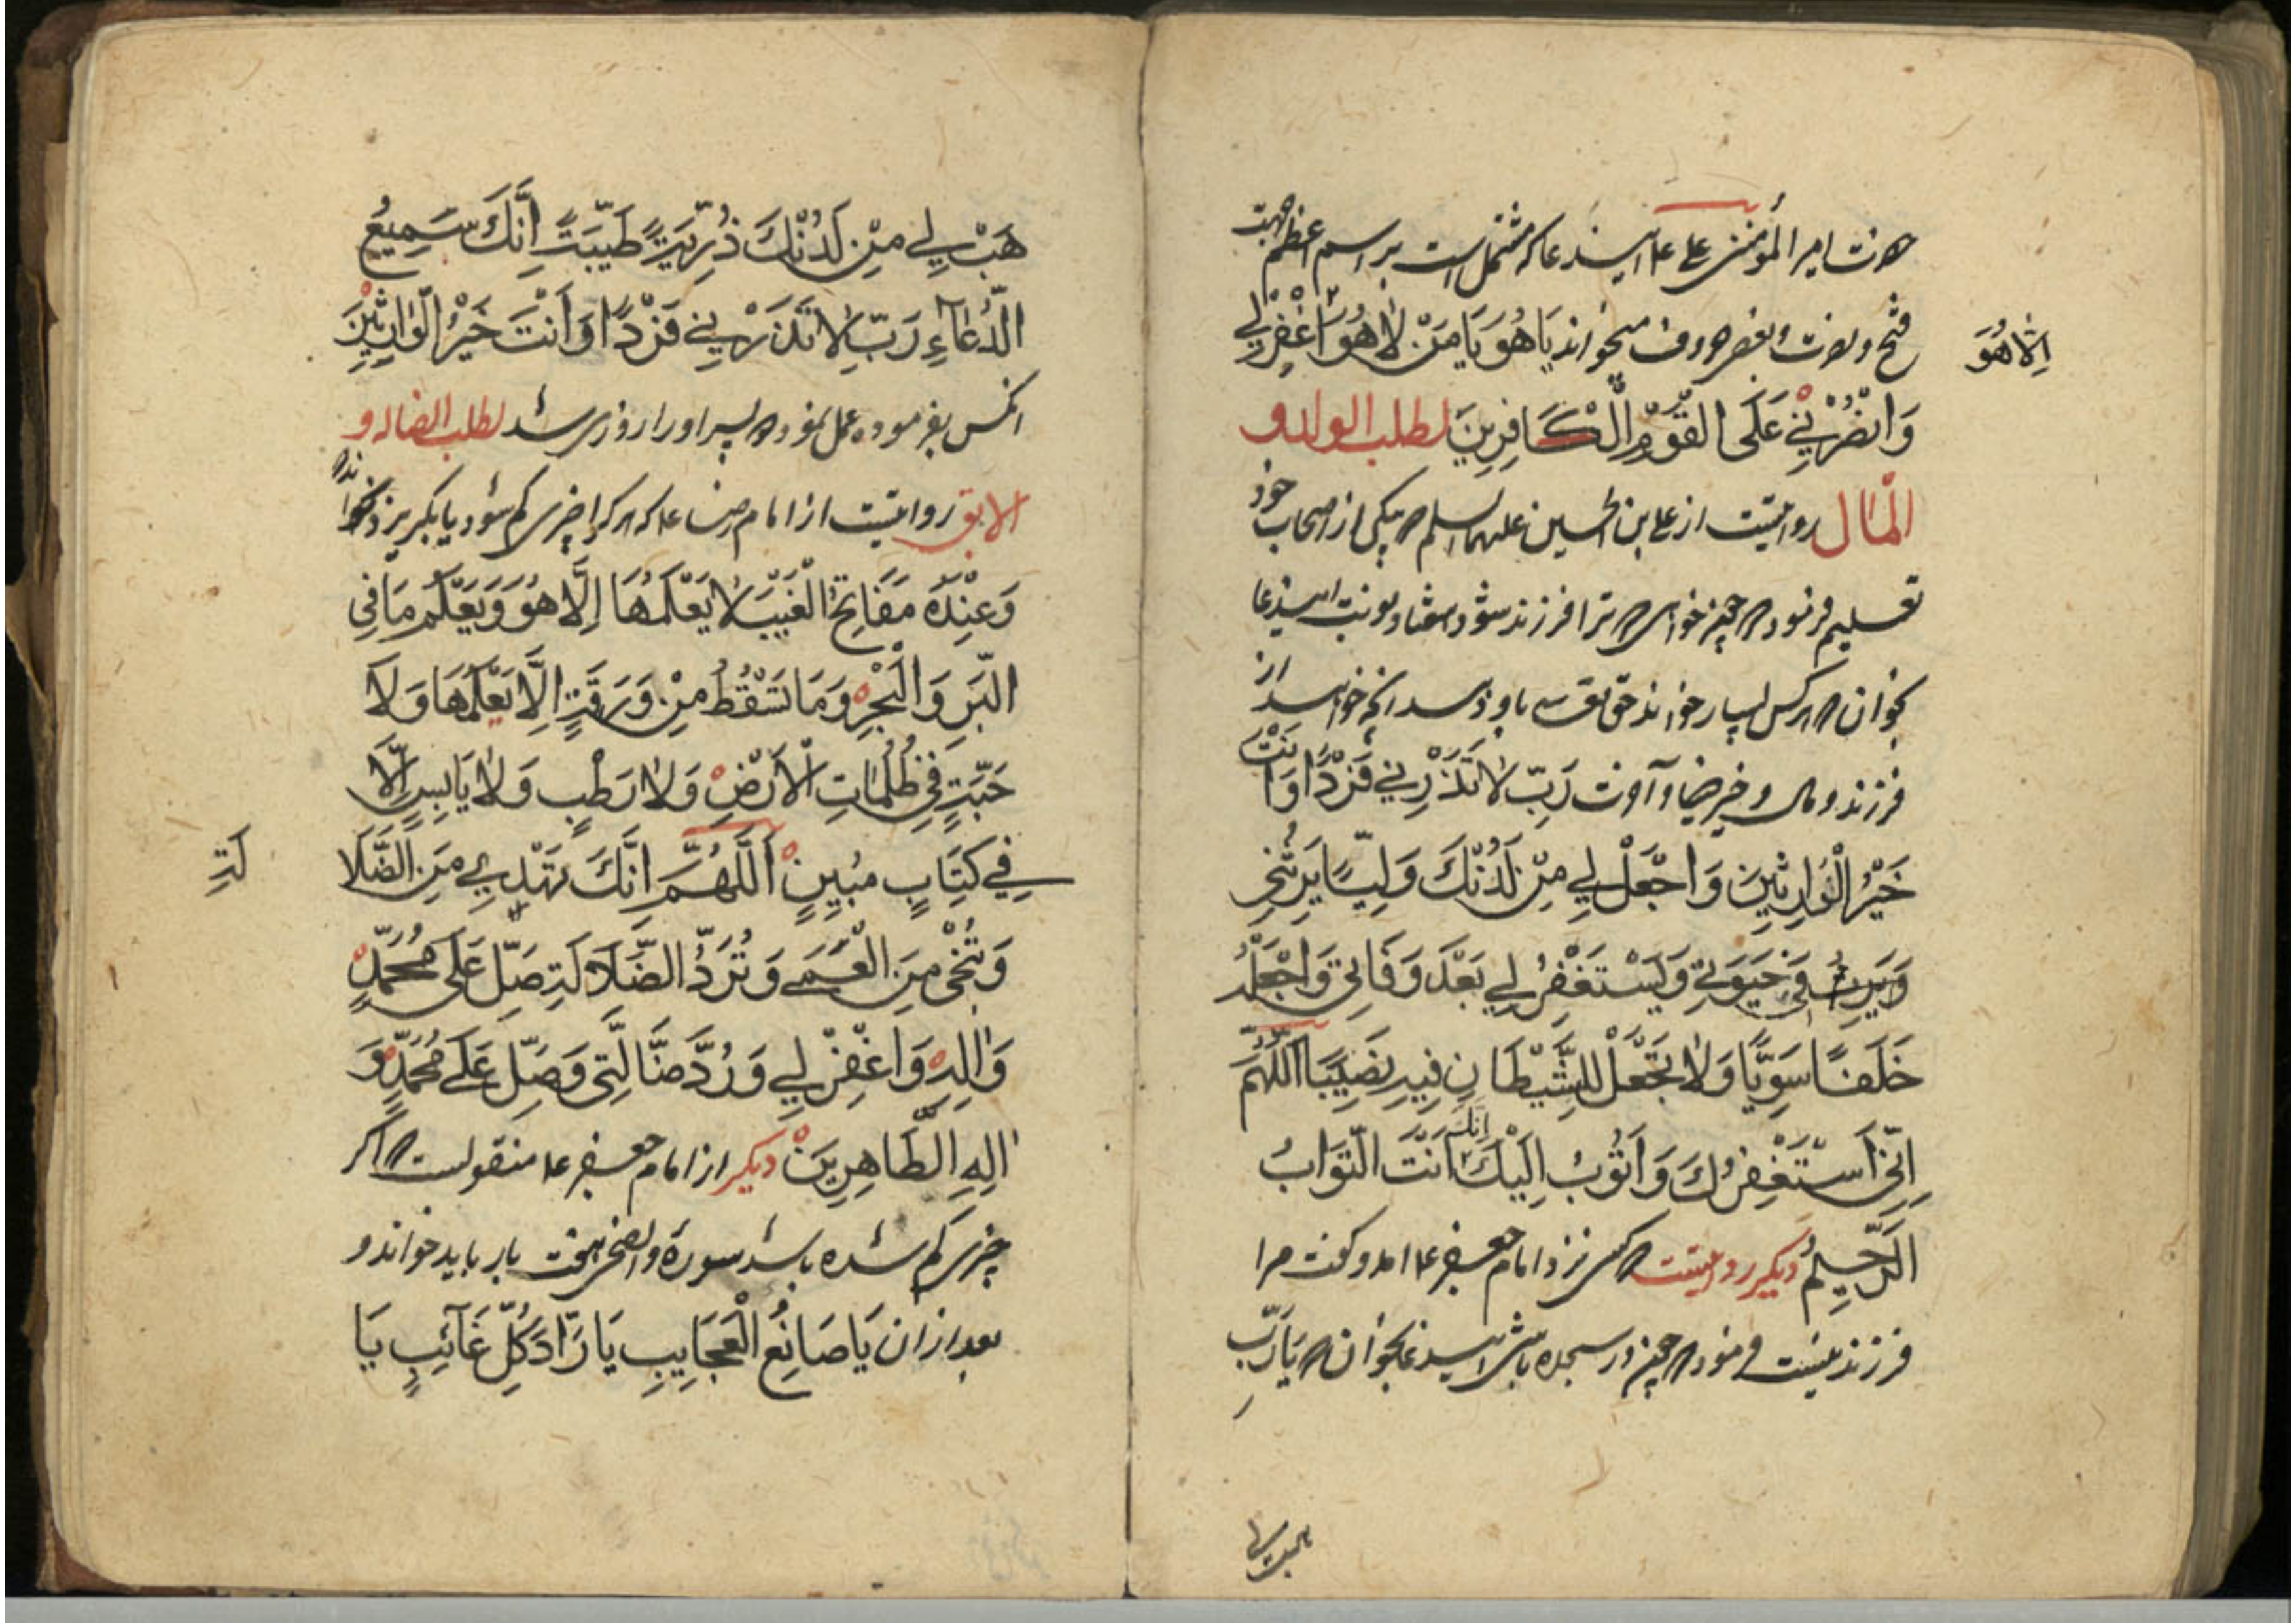 حضرت امیر المؤمنین علی ع این دعا که مشتمل است بر اسم اعظم جهت
فتح و نصرت میخواند یَا هُوَ یَا مَنْ لَا هُوَ اغْفِرْ لِي
اِلَّا هُوَ
وَانْصُرْنِي عَلَى القَوْمِ الْكَافِرِينَ لطلب الولد و
المال روایتست از علی بن الحسین علیهما السلم که یکی از اصحاب خود
تعلیم فرمود که چون خواهی که ترا فرزند شود هفتاد نوبت این دعا
بخوان که هر کس بسیار خواند حق تعالی باو دهد آنچه خواهد از
فرزند و مال و خیر دنیا و آخرت رَبِّ لَا تَذَرْنِي فَرْدًا وَاَنْتَ
خَيْرُ الْوَارِثِينَ وَاجْعَلْ لِي مِنْ لَدُنْكَ وَلِيًّا يَرِثُنِي
وَيَرِثُ فِي حَيَوتِي وَيَسْتَغْفِرُ لِي بَعْدَ وَفَاتِي وَاجْعَلْهُ
خَلَفًا سَوِيًّا وَلَا تَجْعَلْ لِلشَّيْطَانِ فِيهِ نَصِيبًا اَللَّهُمَّ
اِنِّي اَسْتَغْفِرُكَ وَاَتُوبُ اِلَيْكَ اِنَّكَ اَنْتَ التَّوَابُ
الرَّحِيمُ دیگر روایتست که کسی نزد امام جعفر ع امد و گفت مرا
فرزند نیست فرمود که چون در سجده باشی این دعا بخوان که یَا رَبِّ
هَبْ لِي مِنْ لَدُنْكَ ذُرِّيَةً طَيِّبَةً اِنَّكَ سَمِيعُ
الدُّعَآءِ رَبِّ لَا تَذَرْنِي فَرْدًا وَاَنْتَ خَيْرُ الْوَارِثِينَ
انکس بفرموده عمل نمود که پسر او را روزی شد لطلب الضاله و
الابق روایتست از امام رضا ع که هر که را چیزی گم شود یا بگریزد بخواند
وَعِنْدَهُ مَفَاتِحُ الْغَيْبِ لَا يَعْلَمُهَا اِلَّا هُوَ وَيَعْلَمُ مَا فِي
الْبَرِ وَالْبَحْرِ وَمَا تَسْقُطُ مِنْ وَرَقَةٍ اِلَّا يَعْلَمُهَا وَلَا
حَبَّةٍ فِي ظُلُمَاتِ الْاَرْضِ وَلَا رَطْبٍ وَلَا يَابِسٍ اِلَّا
فِي كِتَابٍ مُبِينٍ اَللَّهُمَّ اِنَّكَ تَهْدِي مِنَ الضَّلَا
لَةِ
وَتُنْجِي مِنَ الْعَمَى وَتَرُدُّ الضَّلَالَةِ صَلِّ عَلَى مُحَمَّدٍ
وَالِهِ وَاغْفِرْ لِي وَرُدَّ ضَالَّتِي وَصَلِّ عَلَى مُحَمَّدٍ وَ
الِهِ الطَّاهِرِينَ دیگر از امام جعفر ع منقولست که اگر
چیزی گم شده باشد سوره والضحی هفت بار باید خواند و
بعد از ان یَا صَانِعُ الْعَجَايِبِ يَا رَادَّ كُلِّ غَآئِبٍ يَا